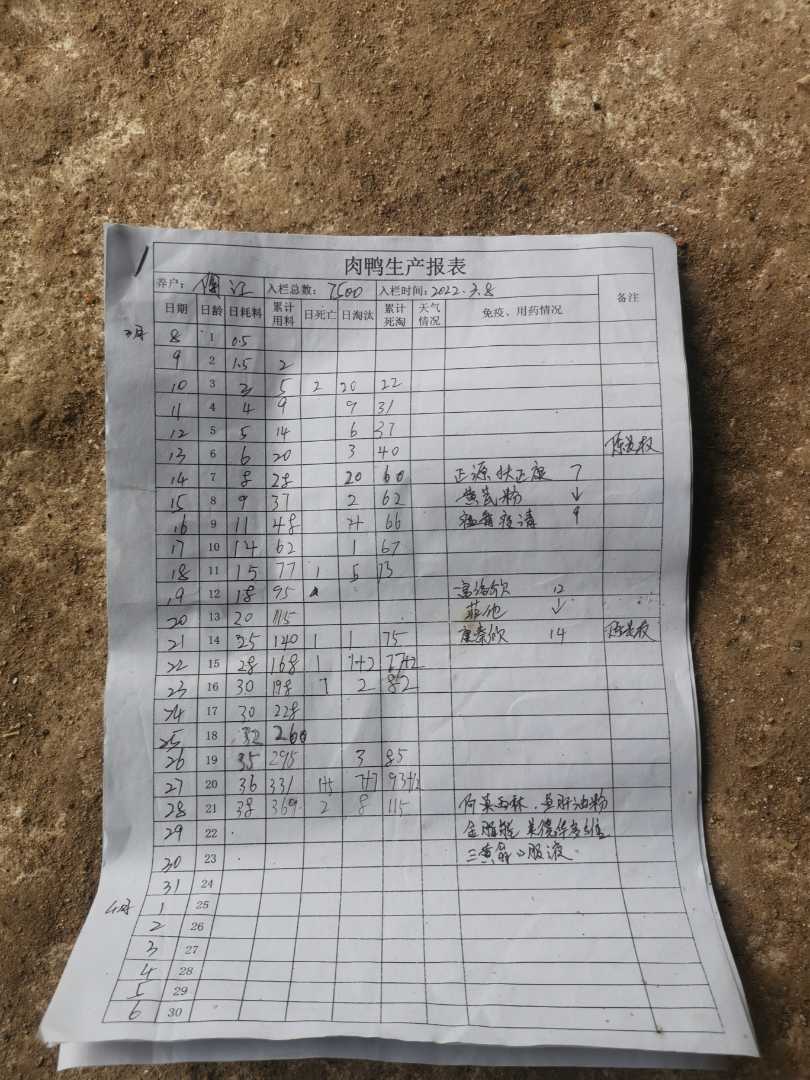 1
肉鸭生产报表
养户： 江 入栏总数：7500 入栏时间：2022.3.8 备注
日期 日龄 日耗料 累计用料 日死亡 日淘汰 累计死淘 天气情况 免疫、用药情况
3月 8 1 0.5
9 2 1.5 2
10 3 3 5 2 20 22
11 4 4 9 9 31
12 5 5 14 6 37
13 6 6 20 3 40
14 7 8 28 20 60 正源 正康 7
15 8 9 37 2 62 黄芪粉 ↓
16 9 11 48 4 66 9
17 10 14 62 1 67
18 11 15 77 1 5 73
19 12 18 95 12
20 13 20 115 ↓
21 14 25 140 1 1 75 14
22 15 28 168 1 1+2 77+2
23 16 30 198 1 2 82
24 17 30 228
25 18 32 260
26 19 35 295 3 85
27 20 36 331 1+5 7+7
28 21 38 369 2 8 115 阿莫西林. 肝油粉
29 22
30 23 三黄 口服液
31 24
4月 1 25
2 26
3 27
4 28
5 29
6 30